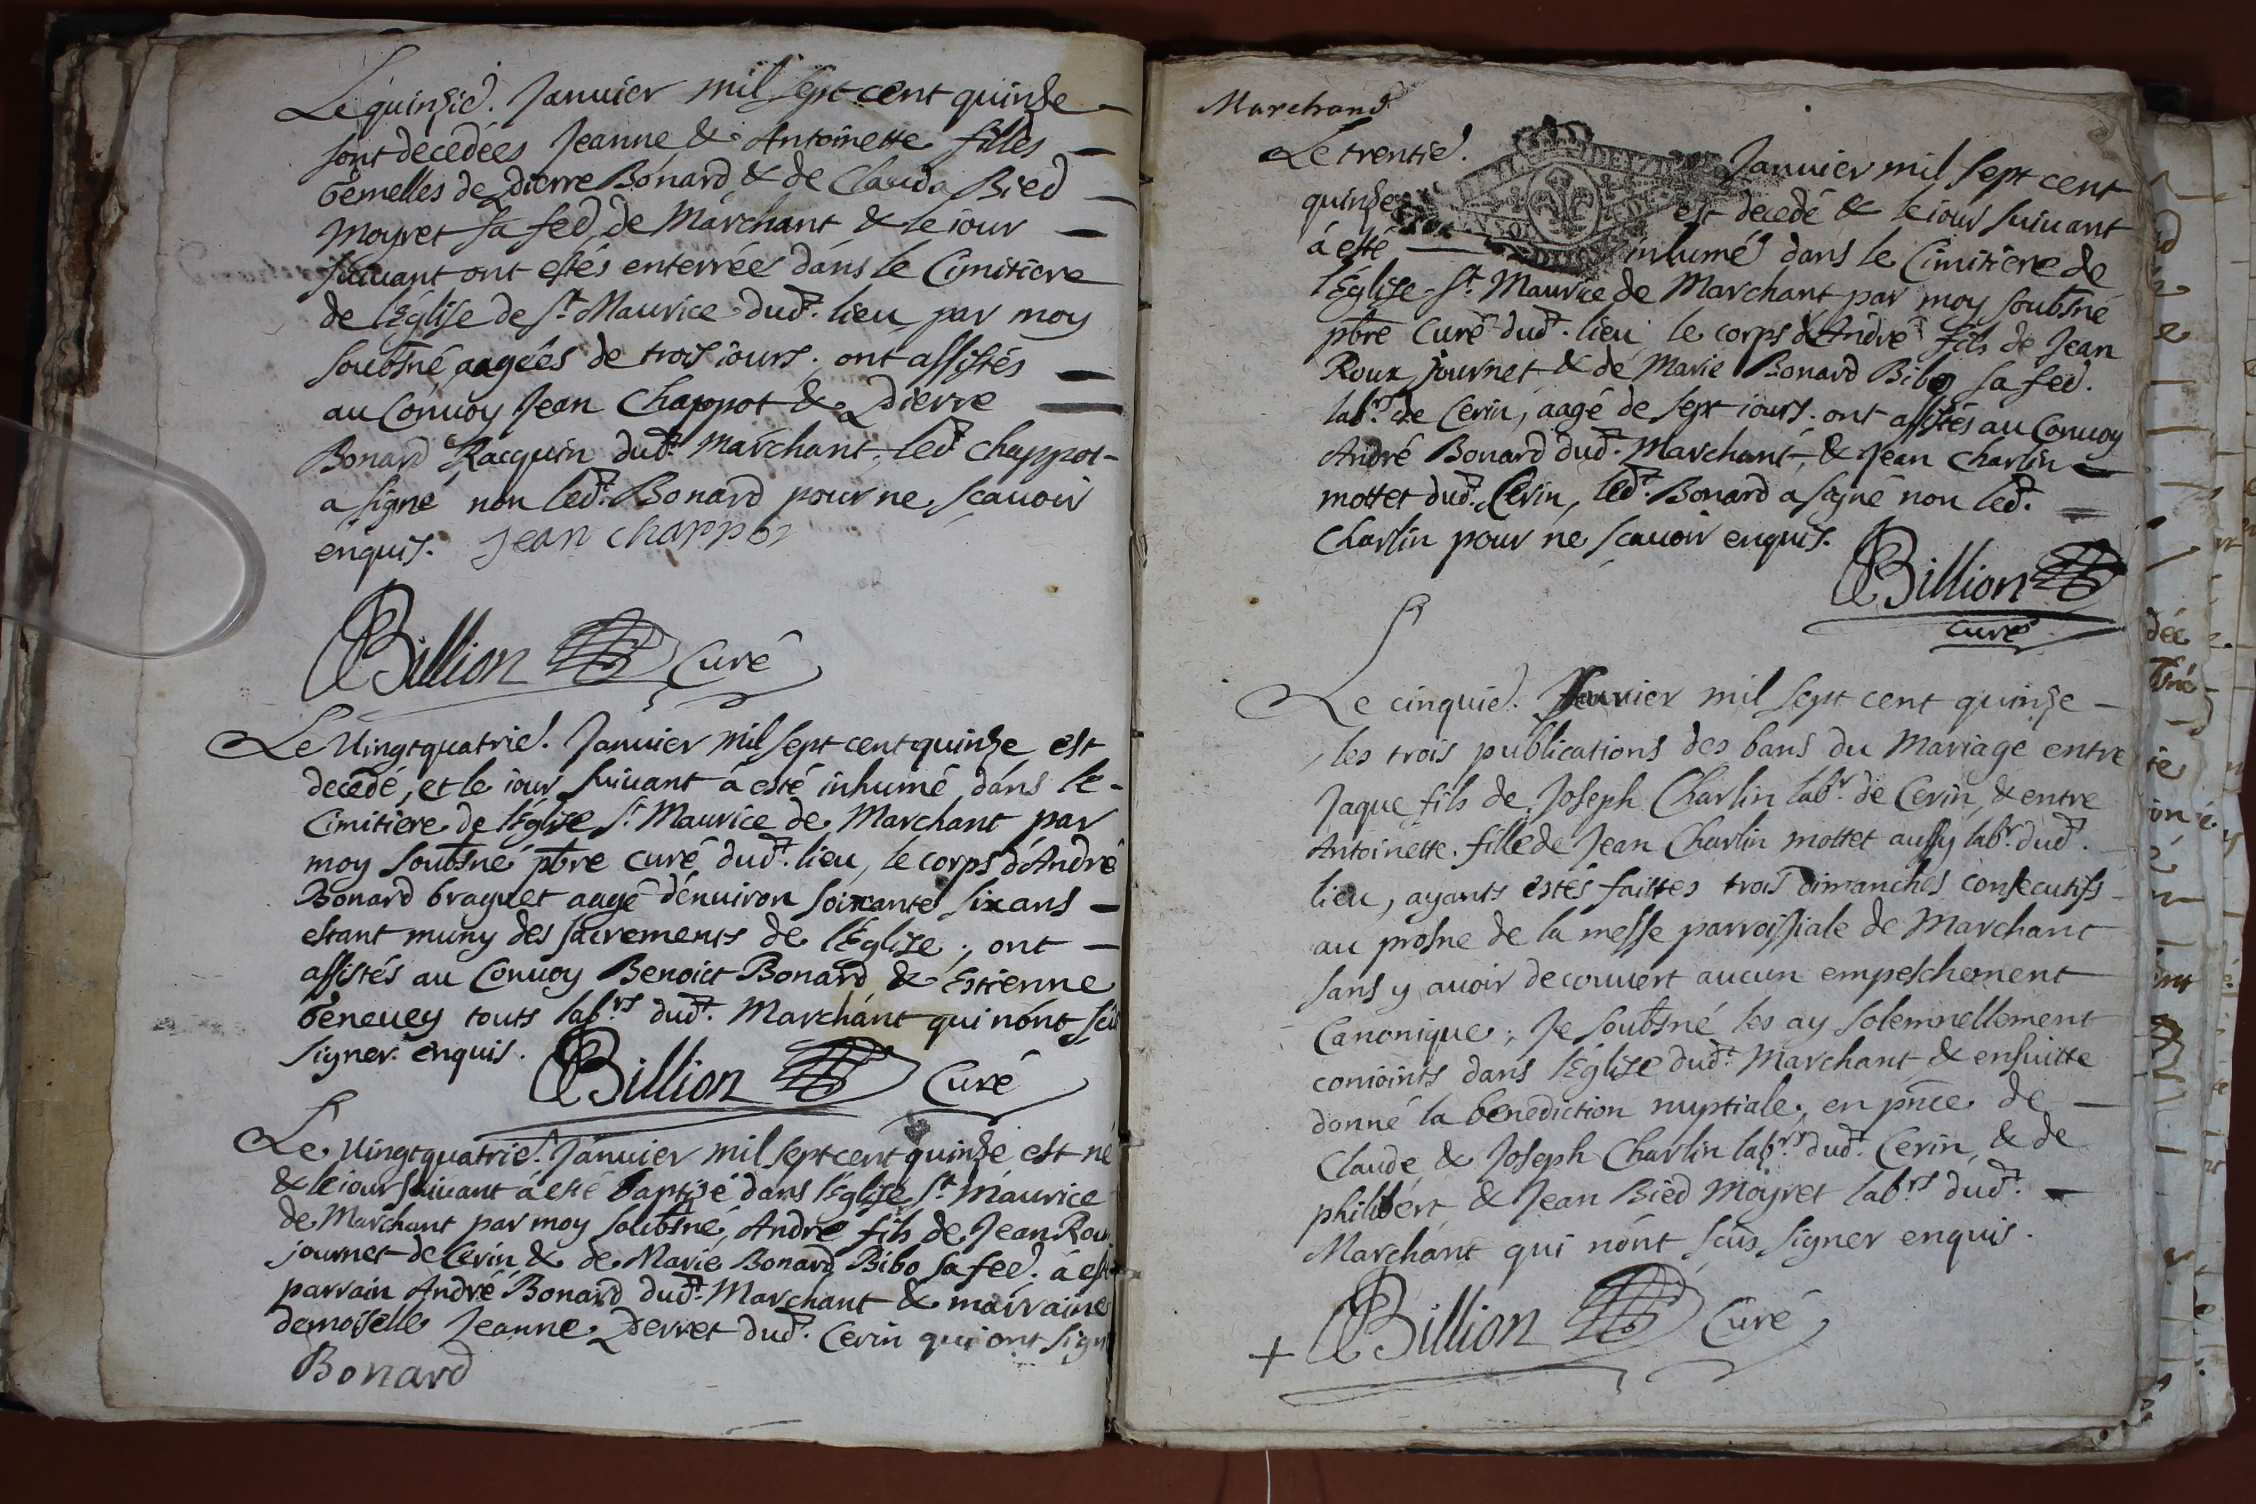 Le quinzie. Janvier mil sept cent quinze
sont decedées Jeanne & Antoinette filles
gemelles de Pierre Bonard & de Clauda Bied
Moyret sa fee. de Marchant & le iour
suiuant ont estés enterrées dans le Cimitiere
de l'Eglise de St Maurice dudt. lieu par moy
soubsné, aagées de trois iours. ont assistés
au Conuoy Jean Chappot & Pierre
Bonard Racquin dudt. Marchant. ledt Chappot
a signé non ledt. Bonard pour ne scauoir
enquis. Jean Chappot
Billion Curé
Le Vingtquatrie. Januier mil sept cent quinze est
decedé, et le iour suiuant à esté inhumé dans le
Cimitiere de l'Eglise St Maurice de Marchant par
moy soubsné pbre curé dudt. lieu, le corps d'André
Bonard braguet aagé d'enuiron soixante six ans
estant muny des sacrements de l'Eglise, ont
assistés au Conuoy Benoict Bonard & Estienne
Geneuey touts labrs dudt. Marchant qui n'ont sçu
signer enquis.
Billion Curé
Le Vingtquatrie. Januier mil sept cent quinze est né
& le iour suiuant à esté baptizé dans l'Eglise St Maurice
de Marchant par moy soubsné, André fils de Jean Roux
journet de Cerin & de Marie Bonard Bibo sa fee. à esté
parrain André Bonard dudt. Marchant & marraine
demoiselle Jeanne Perret dudt. Cerin qui ont signé
Bonard
Marchand
Le trentie. Januier mil sept cent
quinze est decedé & le iour suiuant
à esté inhumé dans le Cimitiere de
l'Eglise St Maurice de Marchant par moy soubsné
pbre Curé dudt. lieu le corps d'André fils de Jean
Roux journet & de Marie Bonard Bibo sa fee.
labr de Cerin, aagé de sept iours. ont assistés au Conuoy
André Bonard dudt. Marchant, & Jean Charlin
mottet dudt. Cerin, ledt. Bonard a signé non ledt.
Charlin pour ne scauoir enquis.
Billion
curé
Le cinquie. feurier mil sept cent quinze
les trois publications des bans du Mariage entre
Jaque fils de Joseph Charlin labr. de Cerin, & entre
Antoinette fille de Jean Charlin mottet aussy labr. dudt.
lieu, ayants estés faittes trois dimanches consecutifs
au prosne de la messe parroissiale de Marchant
sans y auoir decouuert aucun empeschement
Canonique, Je soubsné les ay solemnellement
conioints dans l'Eglise dudt. Marchant & ensuitte
donné la benediction nuptiale, en pnce de
Claude & Joseph Charlin labrs dudt. Cerin, & de
philibert & Jean Bied Moyret labrs dudt.
Marchant qui n'ont scus signer enquis.
Billion Curé